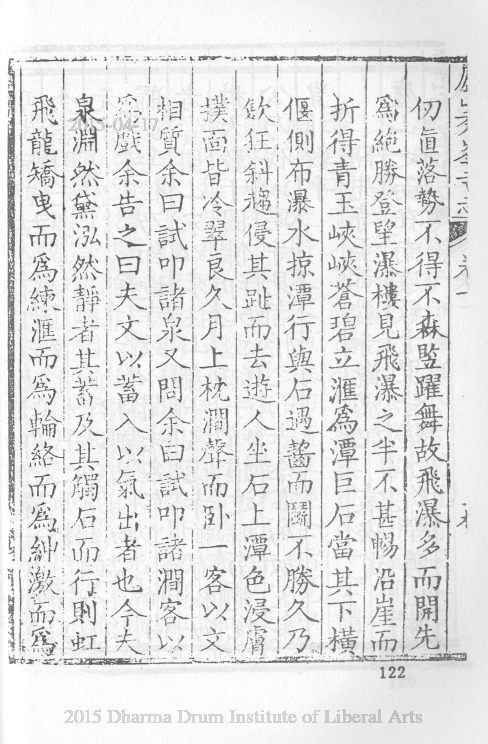 仞直落勢不得不森竪躍舞故飛瀑多而開先
爲絕勝登望瀑樓見飛瀑之半不甚暢沿崖而
折得青玉峽峽蒼碧立滙爲潭巨石當其下橫
偃側布瀑水掠潭行與石遇齧而鬬不勝久乃
斂狂斜趨侵其趾而去遊人坐石上潭色浸膚
撲面皆冷翠良久月上枕澗聲而卧一客以文
相質余曰試叩諸泉又問余曰試叩諸澗客以
爲戲余告之曰夫文以蓄入以氣出者也今夫
泉淵然黛泓然靜者其蓄及其觸石而行則虹
飛龍矯曳而爲練滙而爲輪絡而爲紳激而爲
122
2015 Dharma Drum Institute of Liberal Arts